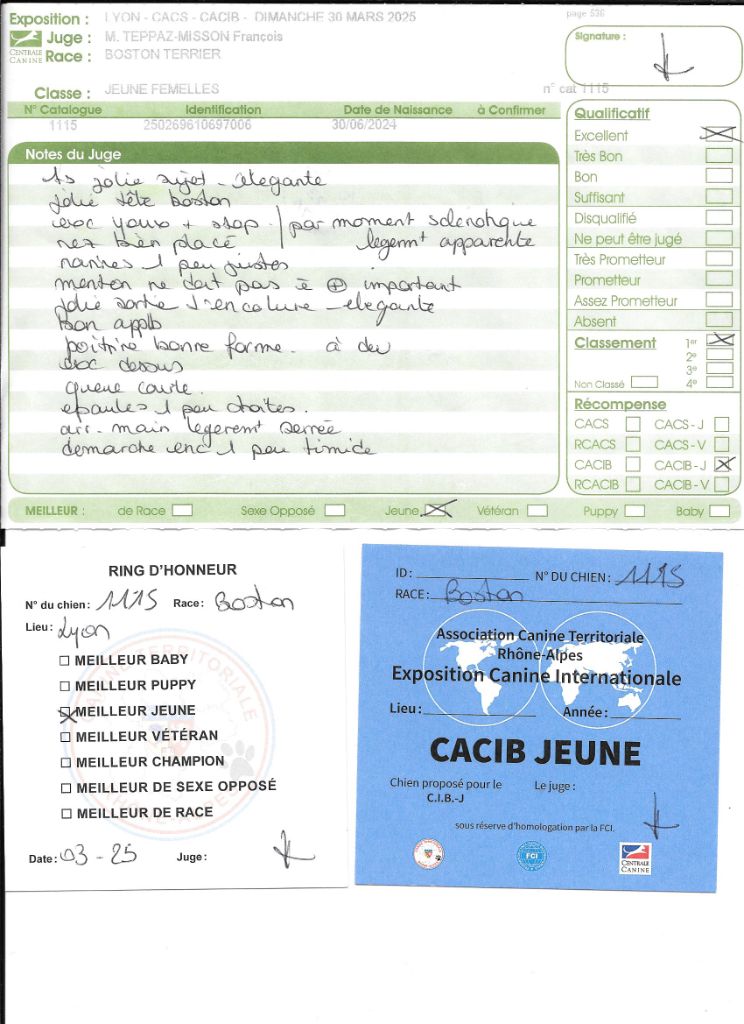 Exposition : LYON - CACS - CACIB - DIMANCHE 30 MARS 2025
page 536
CENTRALE CANINE
Juge : M. TEPPAZ-MISSON François
Race : BOSTON TERRIER
Signature :
Classe : JEUNE FEMELLES
n° cat 1115
N° Catalogue Identification Date de Naissance à Confirmer
1115 250269610697006 30/06/2024
Notes du Juge
ts jolie sujet - élegante
jolie tête boston
exc yeux + stop - / par moment sclerotique
nez bien placé / legermt apparente
narines 1 peu justes
menton ne doit pas ê ⊕ important
jolie sortie d'encolure - elegante
bon applb
poitrine bonne forme. à dev
exc dessus
queue courte.
epaules 1 peu droites.
arr. main legeremt serrée
demarche enc 1 peu timide
Qualificatif
Excellent
Très Bon
Bon
Suffisant
Disqualifié
Ne peut être jugé
Très Prometteur
Prometteur
Assez Prometteur
Absent
Classement 1er
2e
3e
Non Classé 4e
Récompense
CACS CACS - J
RCACS CACS - V
CACIB CACIB - J
RCACIB CACIB - V
MEILLEUR : de Race Sexe Opposé Jeune Vétéran Puppy Baby
RING D'HONNEUR
N° du chien : 1115 Race : Boston
Lieu : Lyon
MEILLEUR BABY
MEILLEUR PUPPY
MEILLEUR JEUNE
MEILLEUR VÉTÉRAN
MEILLEUR CHAMPION
MEILLEUR DE SEXE OPPOSÉ
MEILLEUR DE RACE
Date : 03 - 25 Juge :
ID : N° DU CHIEN : 1115
RACE : Boston
Association Canine Territoriale
Rhône-Alpes
Exposition Canine Internationale
Lieu : Année :
CACIB JEUNE
Chien proposé pour le Le juge :
C.I.B.-J
sous réserve d'homologation par la FCI.
FCI
CENTRALE CANINE